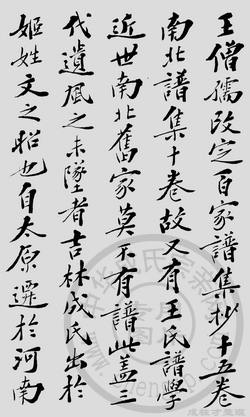 王僧孺改定百家譜集抄十五卷
南北譜集十卷故又有王氏譜學
近世南北舊家莫不有譜此蓋三
代遺風之未墜者吉林成氏出於
姬姓文之昭也自太原遷於河南